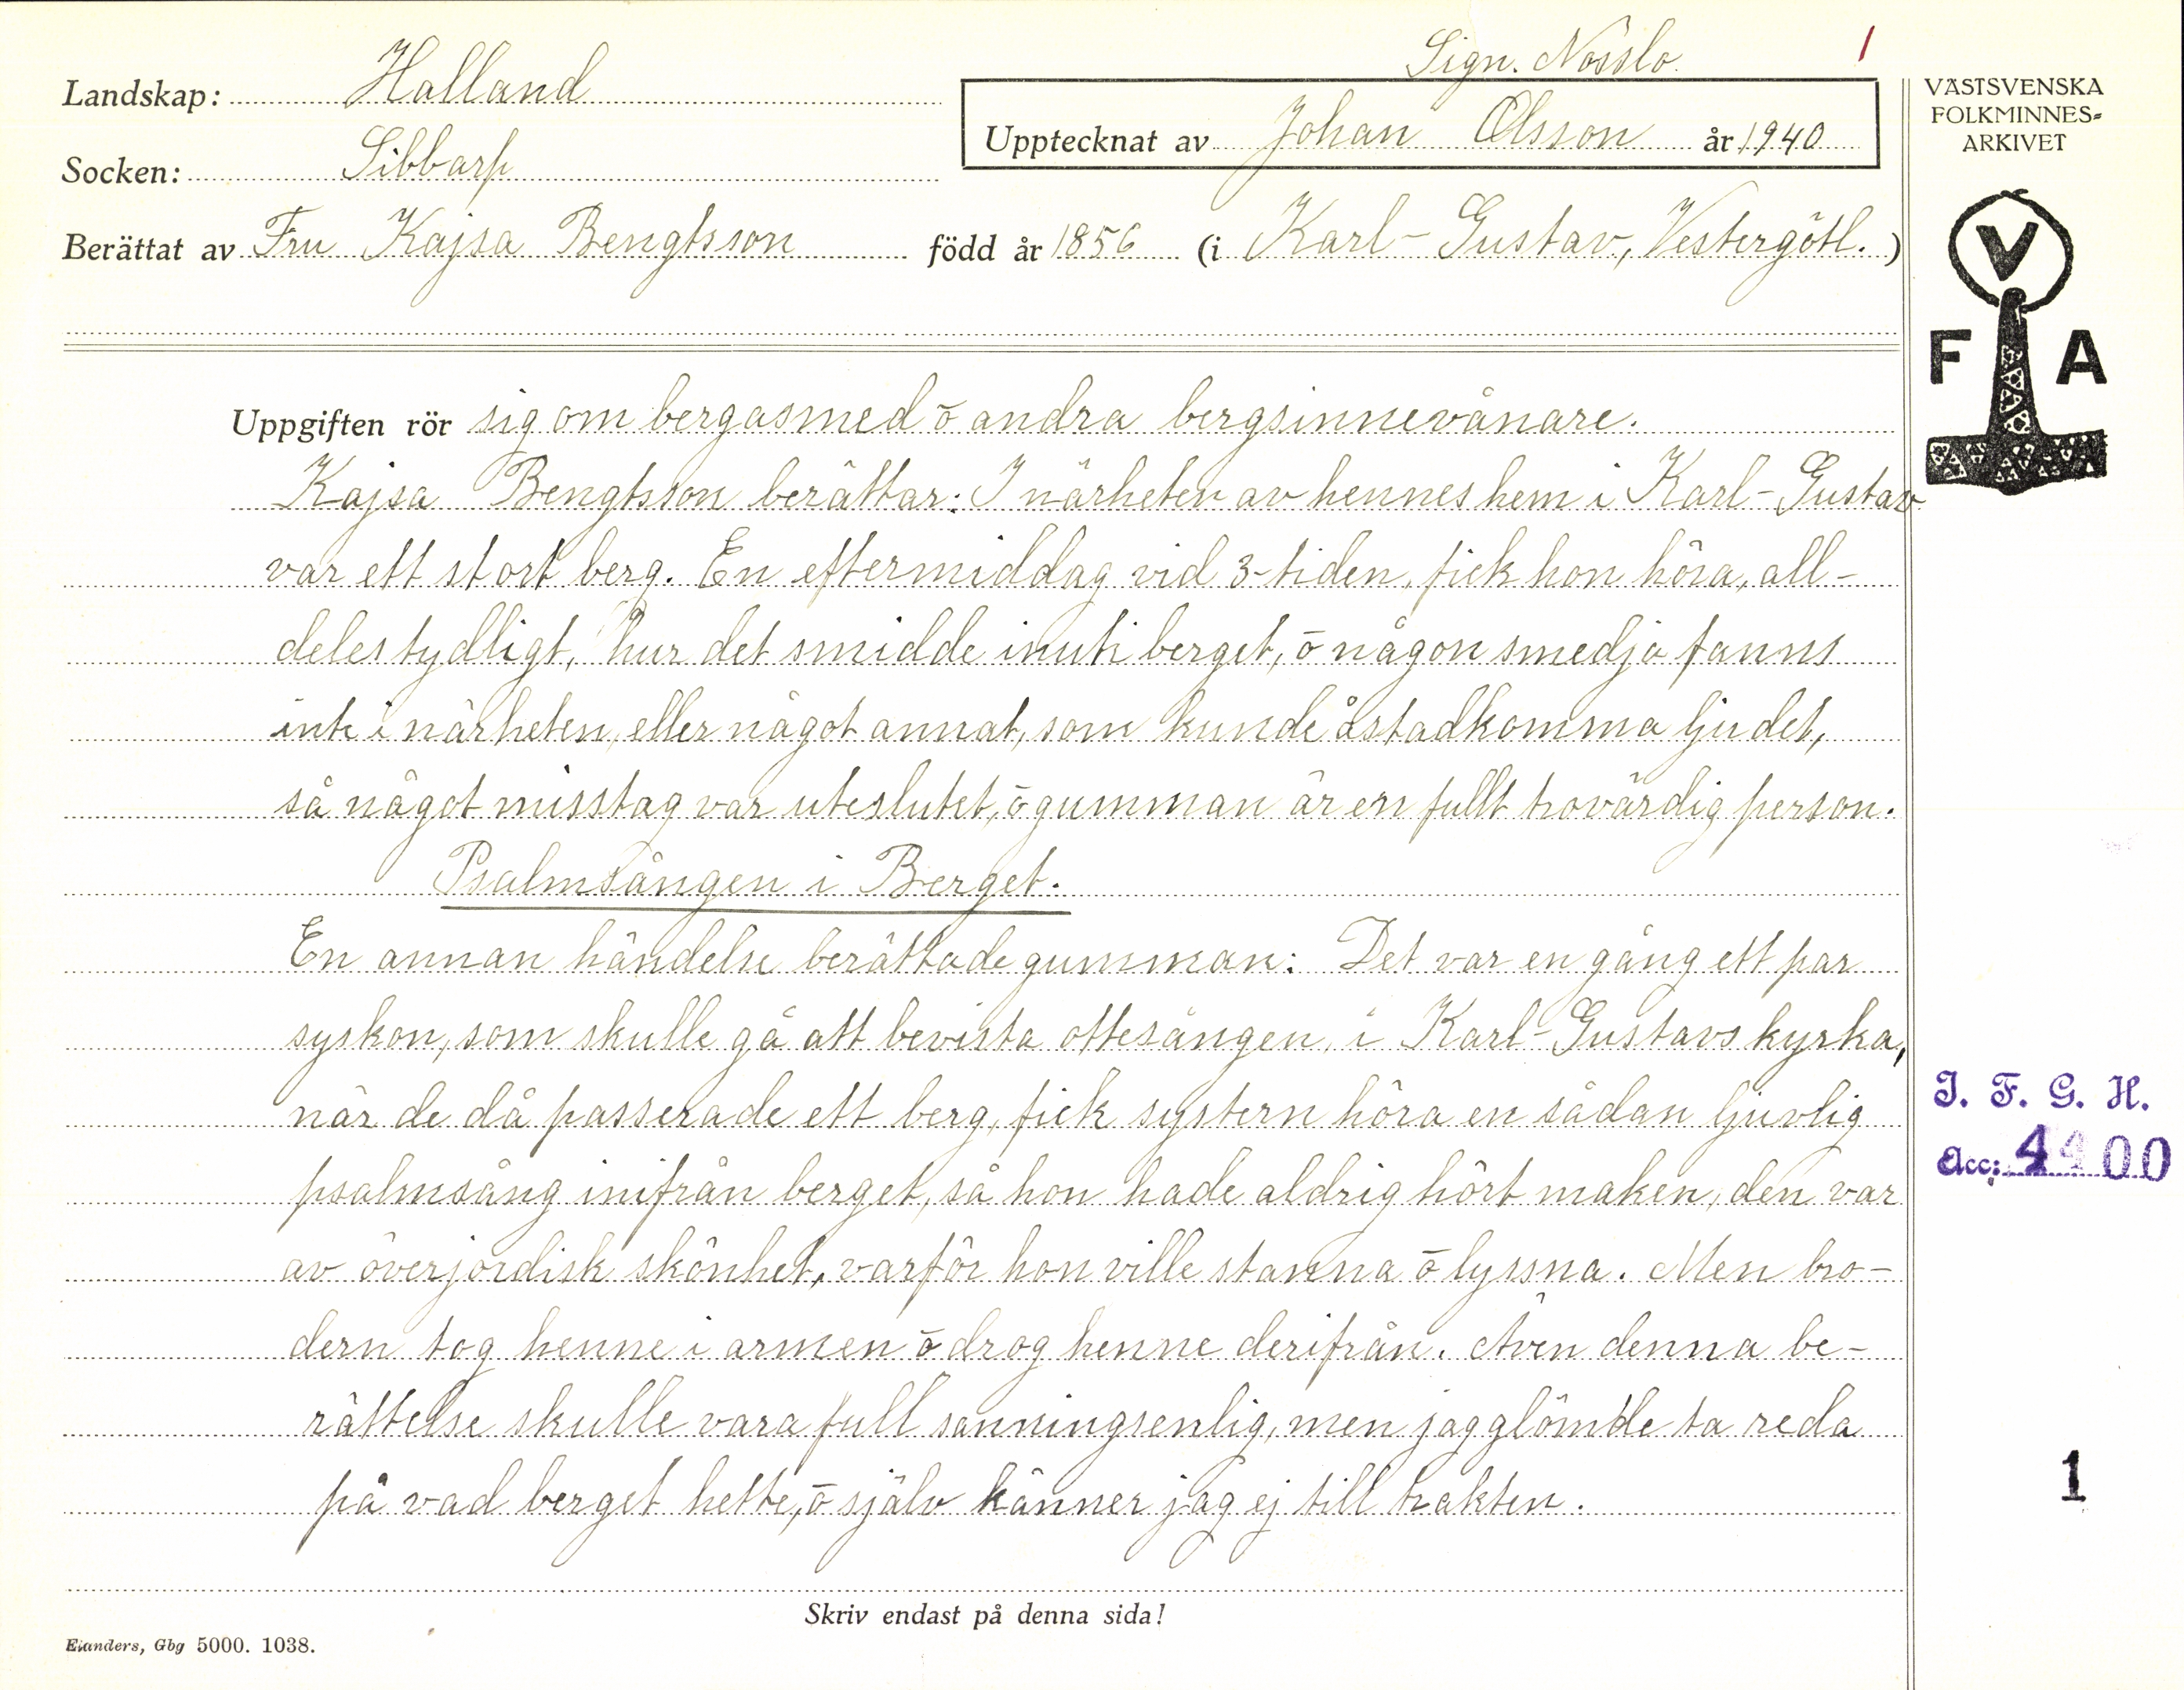 Sign. Nösslo.
1
Landskap: Halland
Upptecknat av Johan Olsson år 1940
Socken: Sibbarp
Berättat av Fru Kajsa Bengtsson född år 1856 (i Karl-Gustav, Vestergötl.)
VÄSTSVENSKA
FOLKMINNES=
ARKIVET
V
F A
Uppgiften rör sig om bergasmed ō andra bergsinnevånare.
Kajsa Bengtsson berättar: I närheten av hennes hem i Karl-Gustav
var ett stort berg. En eftermiddag vid 3-tiden, fick hon höra, all-
deles tydligt, hur det smidde inuti berget, ō någon smedja fanns
inte i närheten, eller något annat, som kunde åstadkomma ljudet,
så något misstag var uteslutet, ō gumman är en fullt trovärdig person.
Psalmsången i Berget.
En annan händelse berättade gumman: Det var en gång ett par
syskon, som skulle gå att bevista ottesången, i Karl-Gustavs kyrka,
när de då passerade ett berg, fick systern höra en sådan ljuvlig
psalmsång inifrån berget, så hon hade aldrig hört maken, den var
av överjordisk skönhet, varför hon ville stanna ō lyssna. Men bro-
dern tog henne i armen ō drog henne derifrån. Även denna be-
rättelse skulle vara full sanningsenlig, men jag glömde ta reda
på vad berget hette, ō själv känner jag ej till trakten.
I. F. G. H.
Acc: 4400
1
Skriv endast på denna sida!
Elanders, Gbg 5000. 1038.